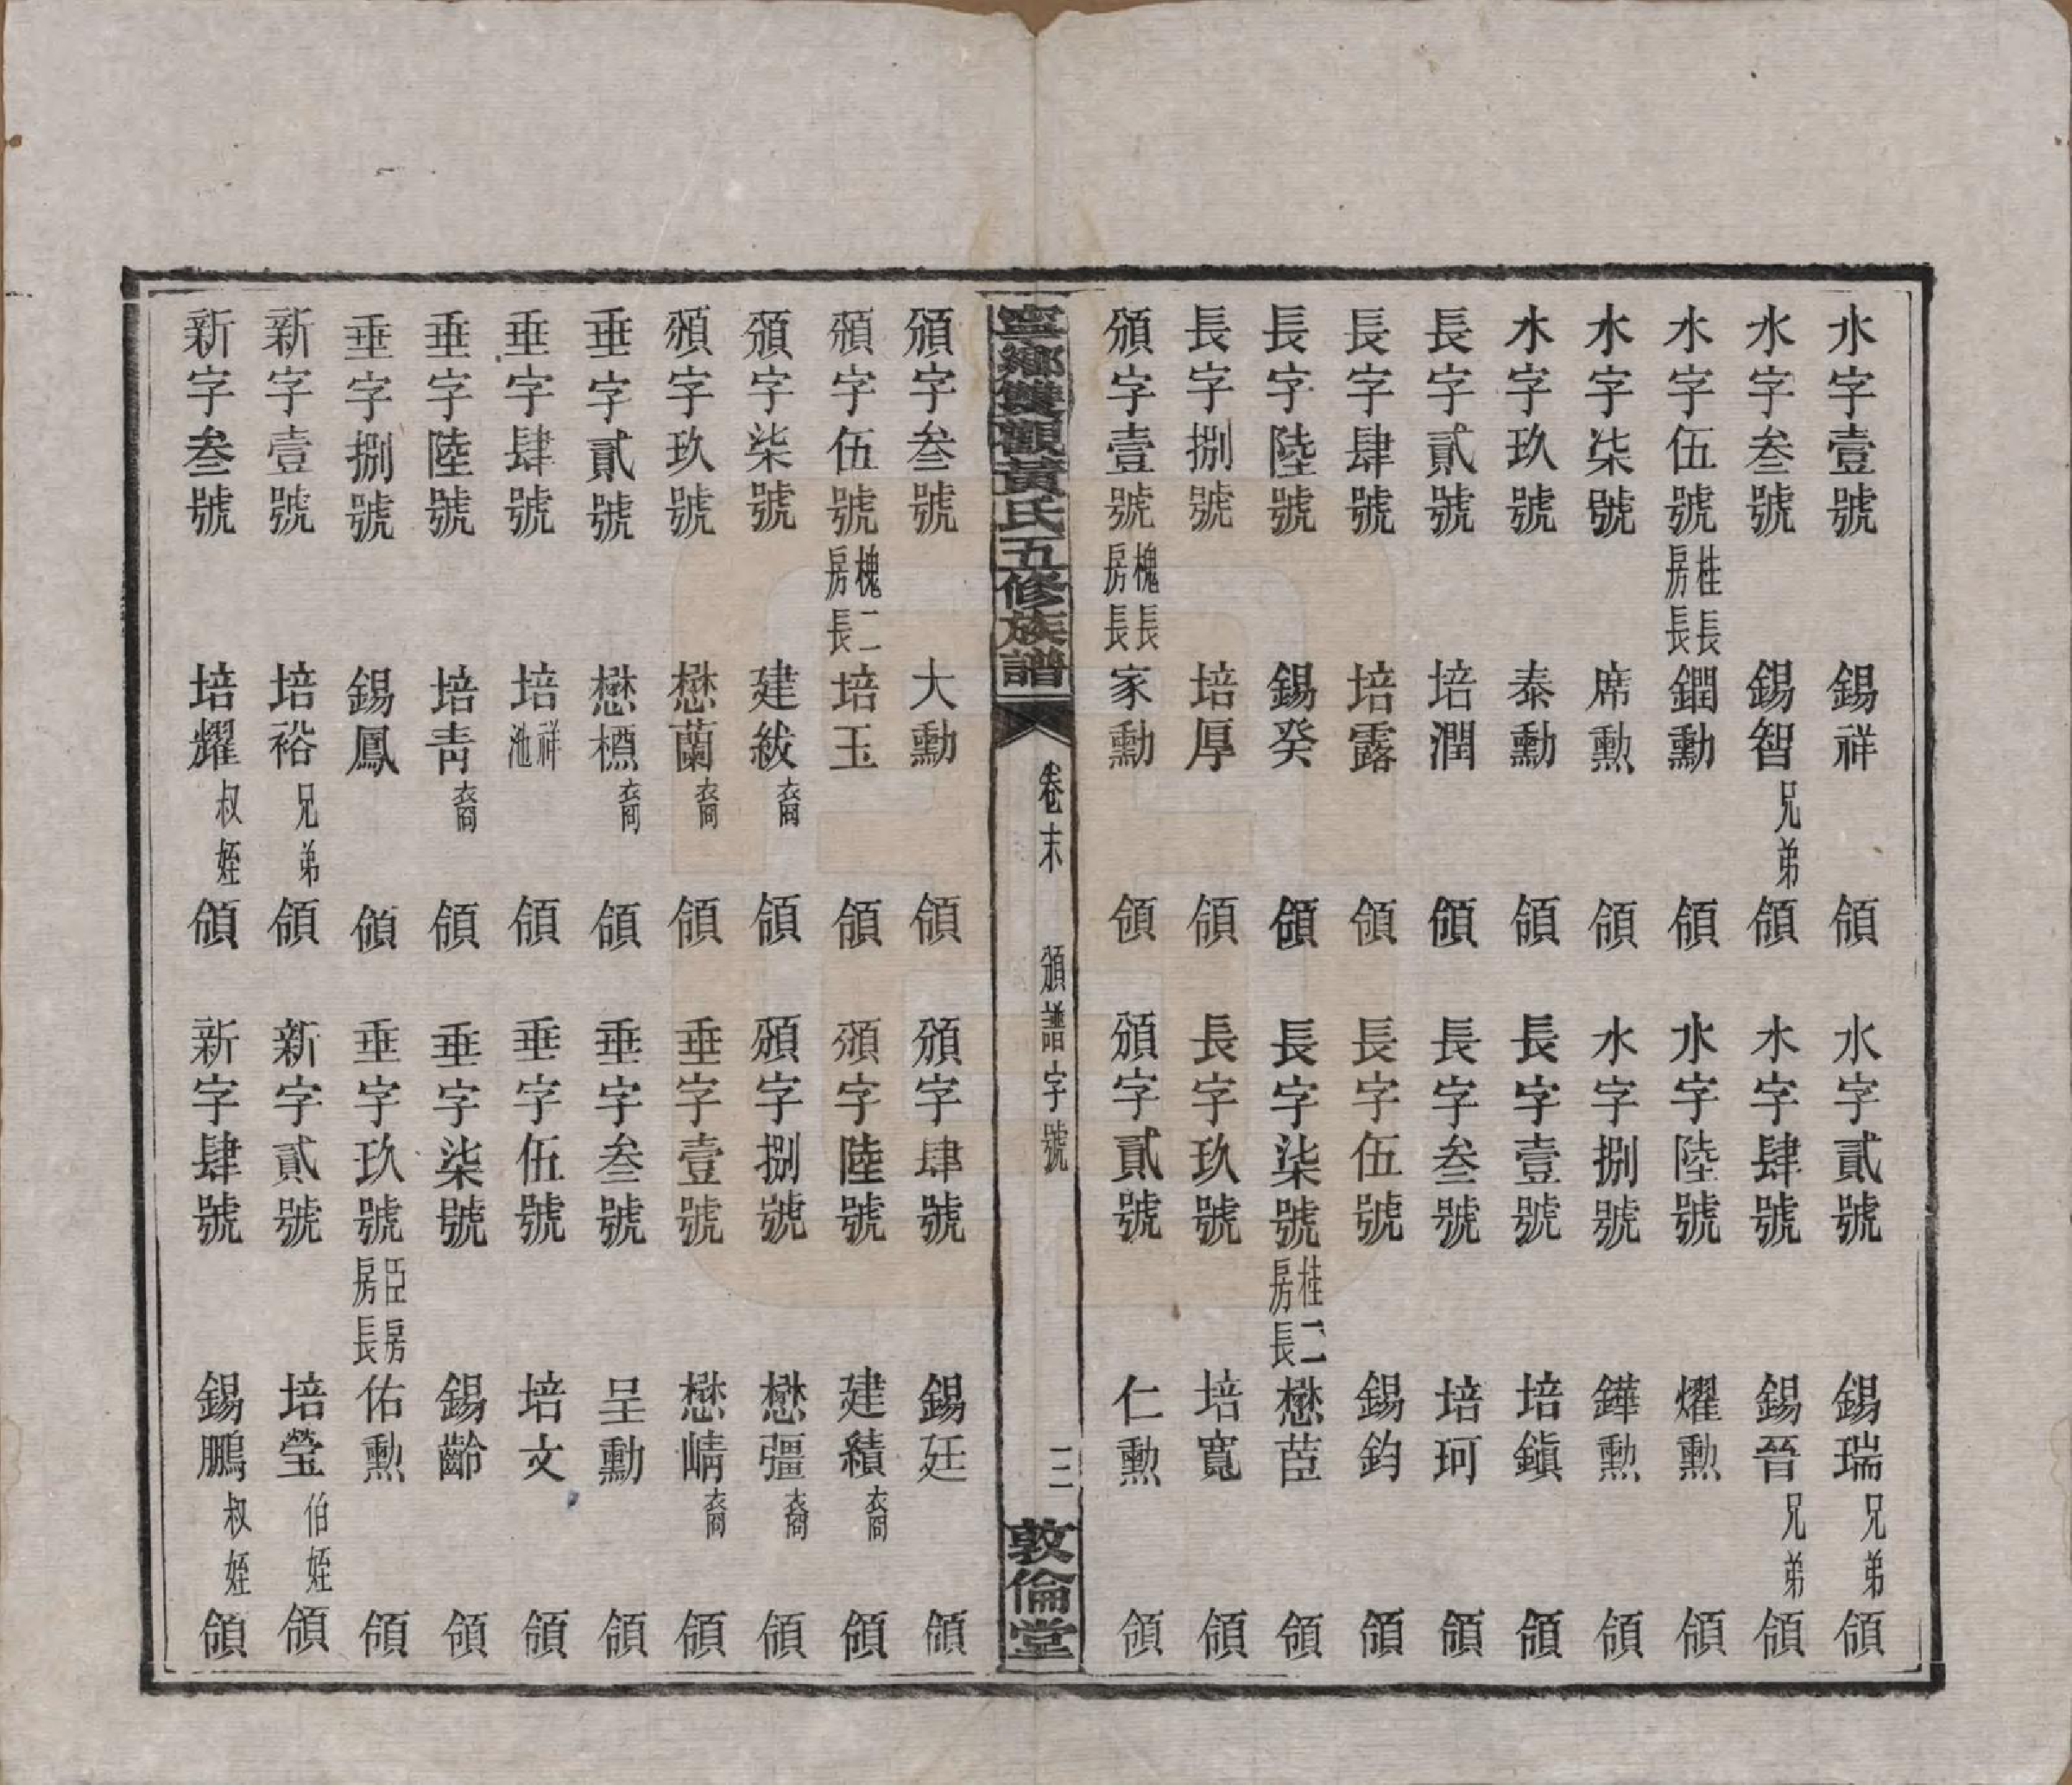 水字壹號　錫祥　領　水字貳號　錫瑞兄弟領
水字叁號　錫智兄弟領　水字肆號　錫晉兄弟領
水字伍號桂長房長鐧勳　領　水字陸號　燿勳　領
水字柒號　席勳　領　水字捌號　鏵勳　領
水字玖號　泰勳　領　長字壹號　培鎮　領
長字貳號　培潤　領　長字叁號　培珂　領
長字肆號　培露　領　長字伍號　錫鈞　領
長字陸號　錫癸　領　長字柒號桂二房長懋茝　領
長字捌號　培厚　領　長字玖號　培寬　領
頒字壹號槐長房長家勳　領　頒字貳號　仁勳　領
寧鄉雙灣黃氏五修族譜　卷末　頒譜字號　三　敦倫堂
頒字叁號　大勳　領　頒字肆號　錫廷　領
頒字伍號槐二房長培玉　領　頒字陸號　建績裔　領
頒字柒號　建紱裔　領　頒字捌號　懋彊裔　領
頒字玖號　懋蘭裔　領　垂字壹號　懋崝裔　領
垂字貳號　懋樌裔　領　垂字叁號　呈勳　領
垂字肆號　培祥池　領　垂字伍號　培文　領
垂字陸號　培青裔　領　垂字柒號　錫齡　領
垂字捌號　錫鳳　領　垂字玖號臣房房長佑勳　領
新字壹號　培裕兄弟領　新字貳號　培瑩伯姪領
新字叁號　培耀叔姪領　新字肆號　錫鵬叔姪領